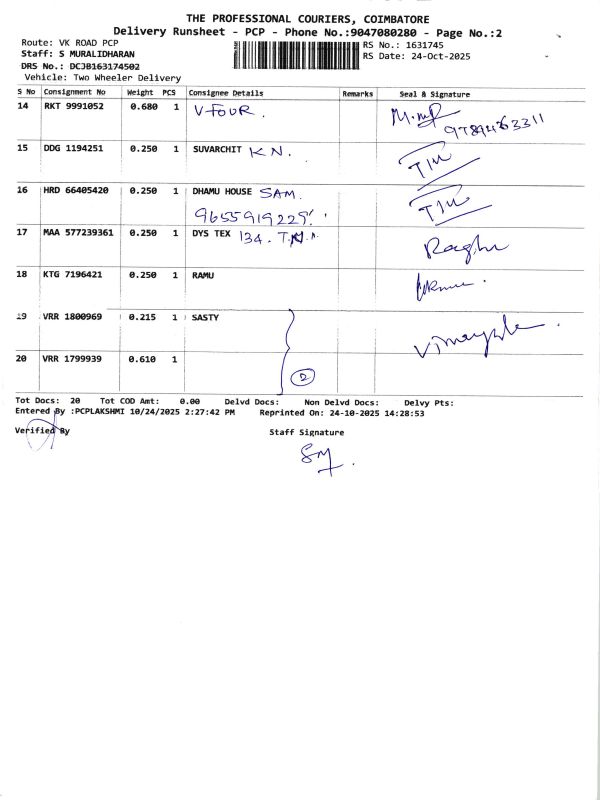 THE PROFESSIONAL COURIERS, COIMBATORE
Delivery Runsheet - PCP - Phone No.:9047080280 - Page No.:2
Route: VK ROAD PCP
Staff: S MURALIDHARAN
DRS No.: DCJB163174502
Vehicle: Two Wheeler Delivery
RS No.: 1631745
RS Date: 24-Oct-2025
S No Consignment No Weight PCS Consignee Details Remarks Seal & Signature
14 RKT 9991052 0.680 1 V-FOUR.
15 DDG 1194251 0.250 1 SUVARCHIT K N.
16 HRD 66405420 0.250 1 DHAMU HOUSE SAM.
9655919225
17 MAA 577239361 0.250 1 DYS TEX 134. Raghu
18 KTG 7196421 0.250 1 RAMU
19 VRR 1800969 0.215 1 SASTY
20 VRR 1799939 0.610 1 2
Tot Docs: 20 Tot COD Amt: 0.00 Delvd Docs: Non Delvd Docs: Delvy Pts:
Entered By :PCPLAKSHMI 10/24/2025 2:27:42 PM Reprinted On: 24-10-2025 14:28:53
Verified By Staff Signature